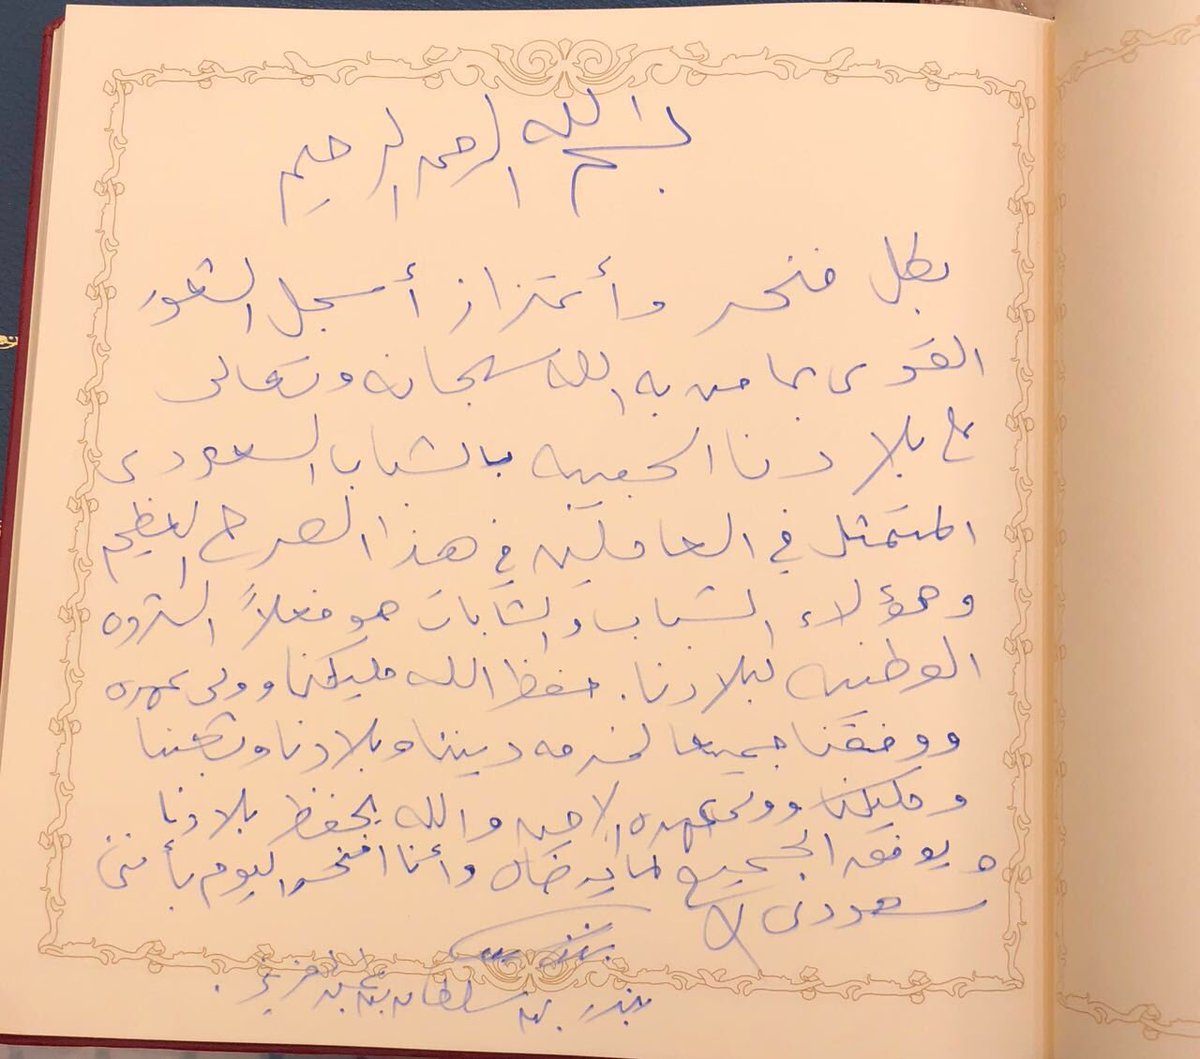 بسم الله الرحمن الرحيم
بكل فخر وأعتزاز أسجل الشعور
القوي بما من به الله سبحانه وتعالى
على بلادنا الحبيبه بالشباب السعودي
المتمثل في العاملين في هذا الصرح العظيم
وهؤلاء الشباب والشابات هو فعلاً الثروه
الوطنيه لبلادنا. حفظ الله مليكنا وولي عهده
ووفقنا جميعا لخدمه ديننا وبلادنا وشعبنا
ومليكنا وولي عهده الامين والله يحفظ بلادنا
ويوفق الجميع لما يرضاه وأنا افتخر اليوم بأنني
سعودي
بندر بن سلطان بن عبدالعزيز